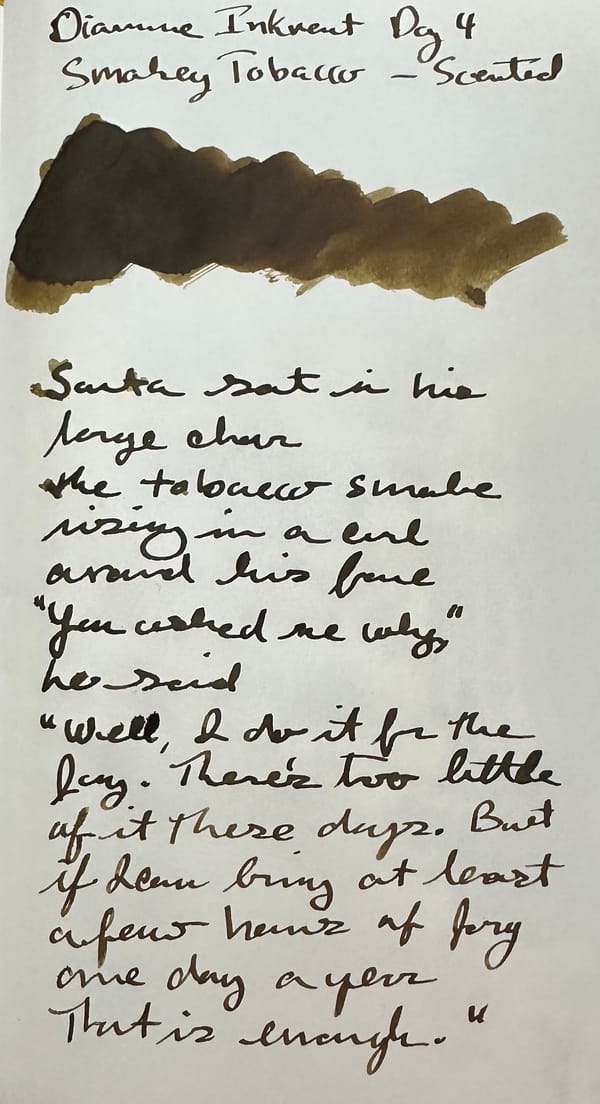 Diamine Inkvent Day 4
Smokey Tobacco – Scented
Santa sat in his
large chair
the tobacco smoke
rising in a curl
around his face
"You asked me why,"
he said
"Well, I do it for the
Joy. There's too little
of it these days. But
if I can bring at least
a few hours of Joy
one day a year
That is enough."